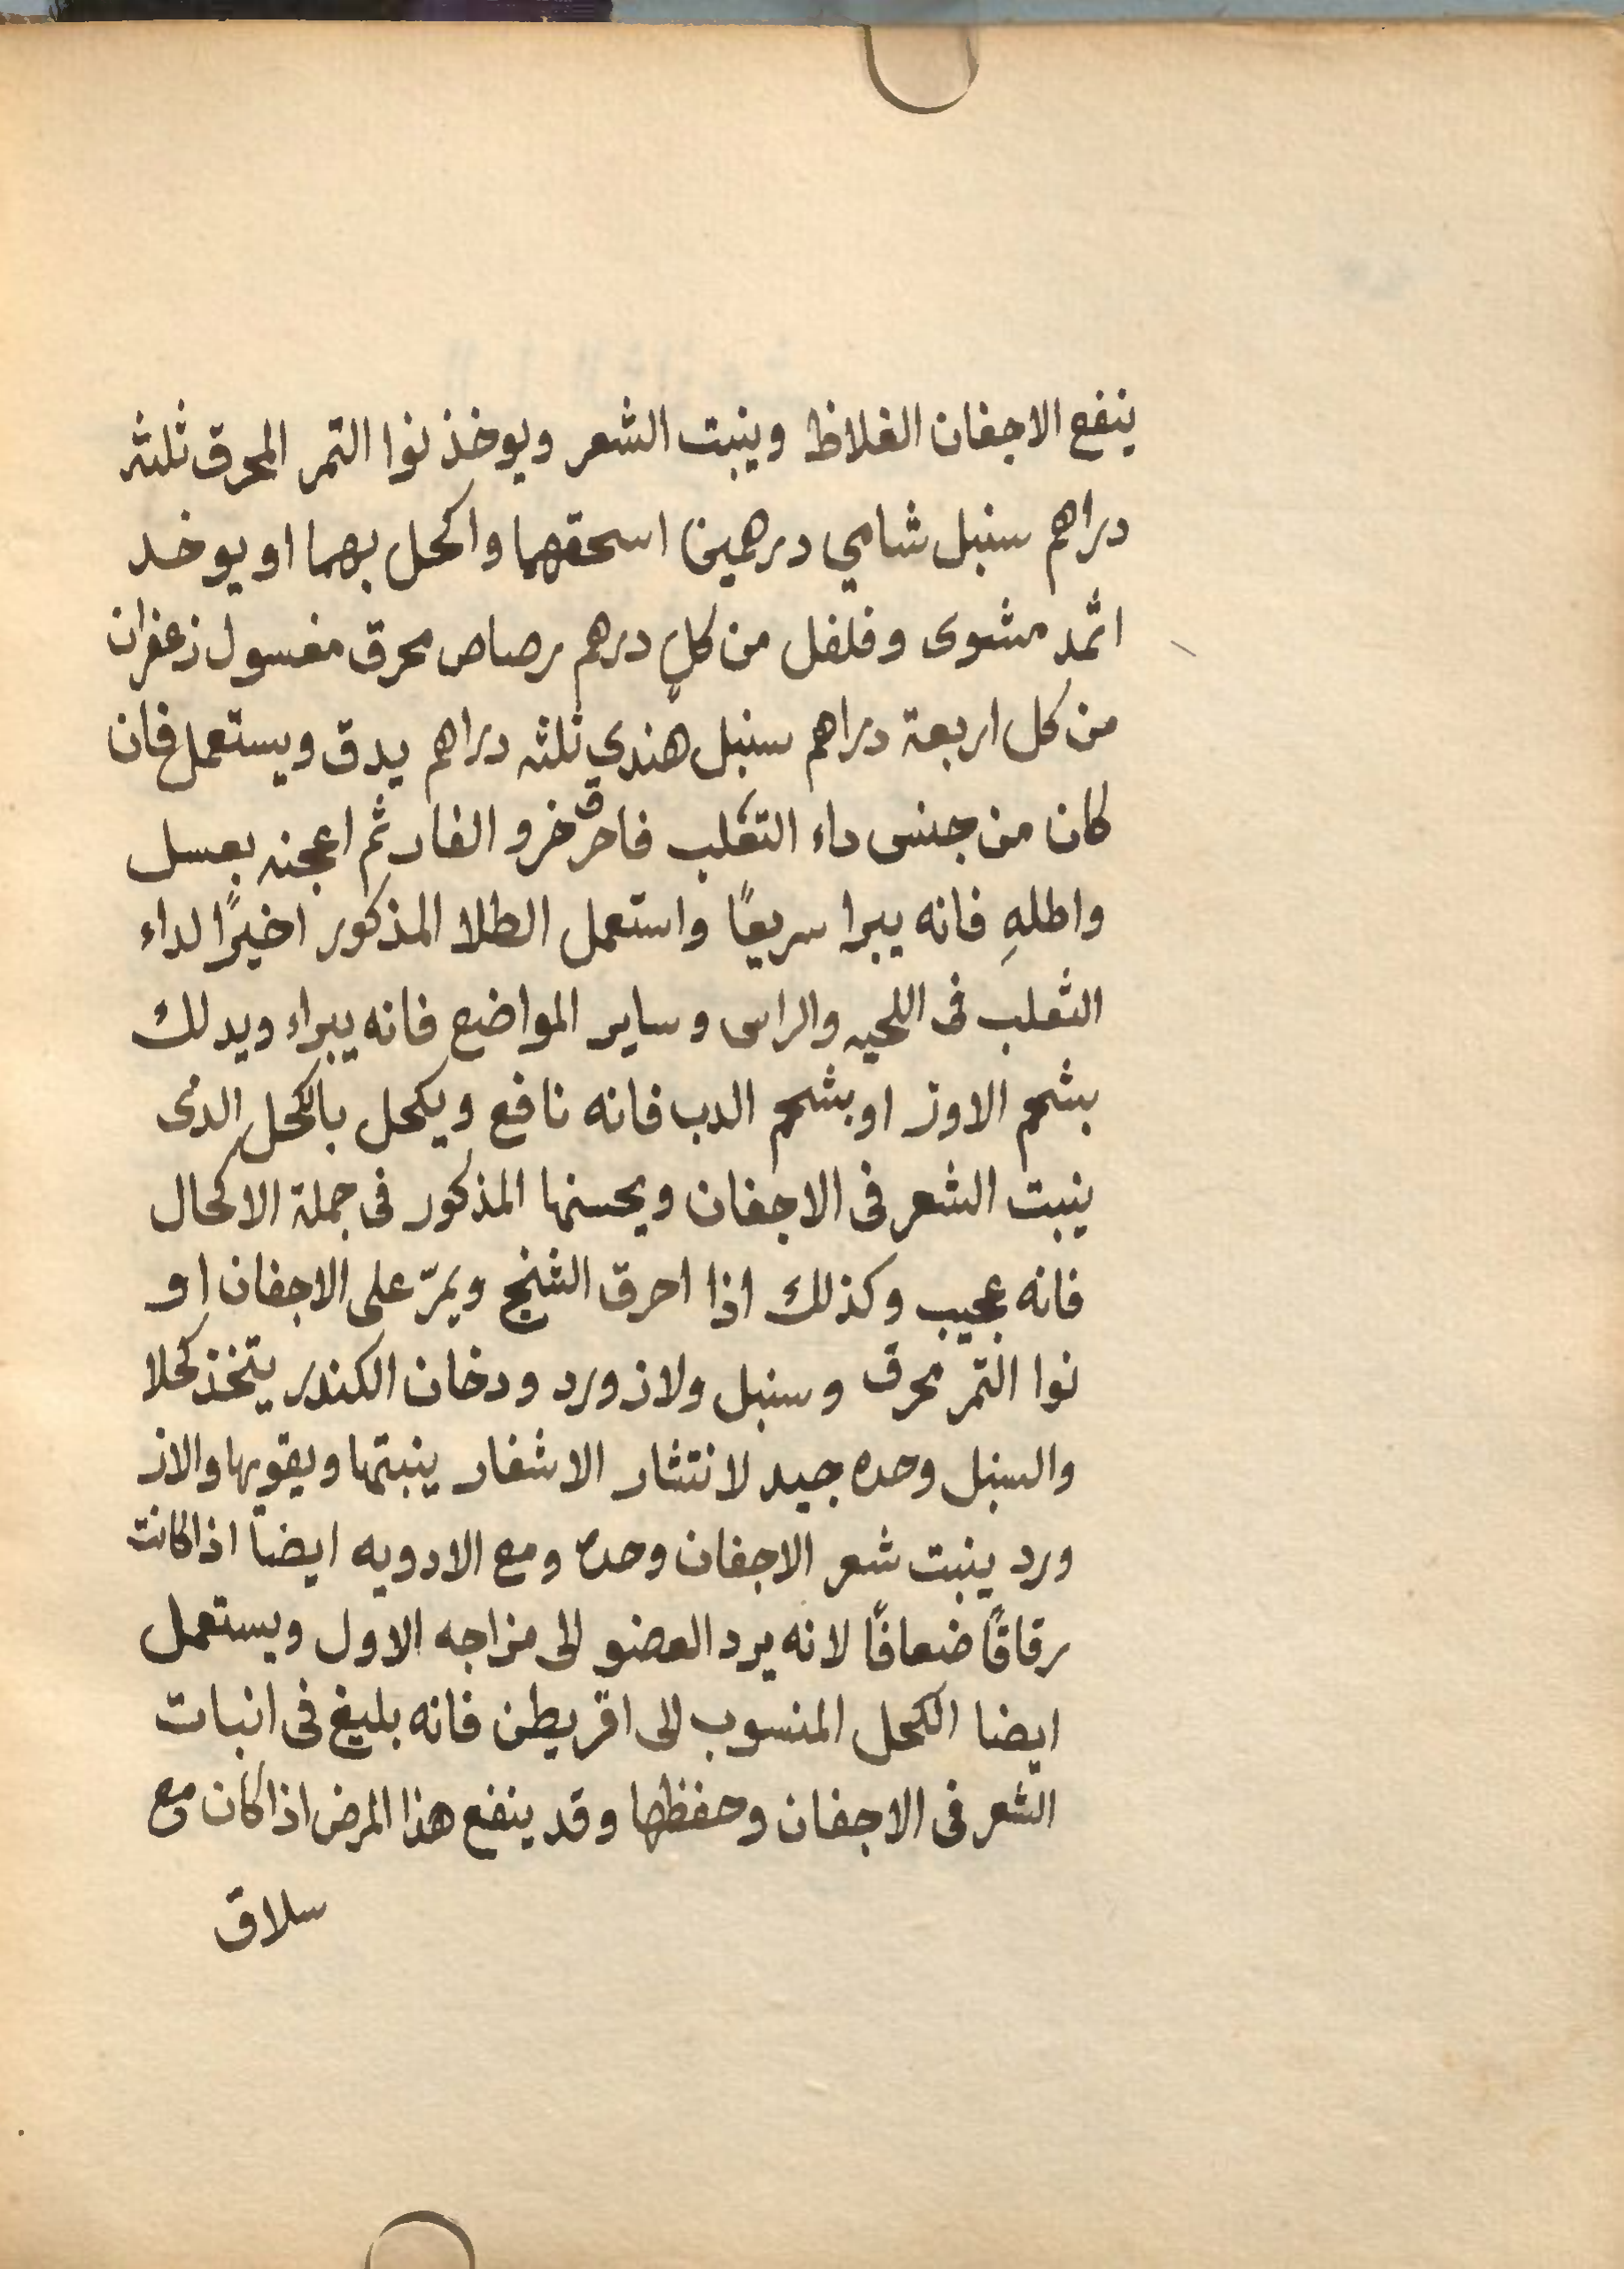 ينفع الاجفان الغلاظ وينبت الشعر ويوخذ نوا التمر المحرق ثلثه
دراهم سنبل شامي درهمين اسحقهما واكحل بهما او يوخد
اثمد مشوى وفلفل من كلٍ درهم رصاص محرق مغسول زعفران
من كل اربعة دراهم سنبل هندي ثلثه دراهم يدق ويستعمل فان
كان من جنس داء الثعلب فاحرق خرو الفار ثم اعجنه بعسل
واطلهِ فانه يبرا سريعًا واستعمل الطلا المذكور اخيرًا لداء
الثعلب فى اللحيه والراس وساير المواضع فانه يبراء ويدلك
بشحم الاوز او بشحم الدب فانه نافع ويكحل بالكحل الذى
ينبت الشعر فى الاجفان ويحسنها المذكور فى جملة الاكحال
فانه عجيب وكذلك اذا احرق الشنج ويمرّ على الاجفان او
نوا التمر محرق وسنبل ولازورد ودخان الكندر يتخذ كحلا
والسنبل وحده جيد لانتثار الاشفار ينبتها ويقويها والاز
ورد ينبت شعر الاجفان وحده ومع الادويه ايضاً اذا كانت
رقاقًا ضعافًا لانه يرد العضو الى مزاجه الاول ويستعمل
ايضا الكحل المنسوب الى اقريطن فانه بليغ فى انبات
الشعر فى الاجفان وحفظها وقد ينفع هذا المرض اذا كان مع
سلاق